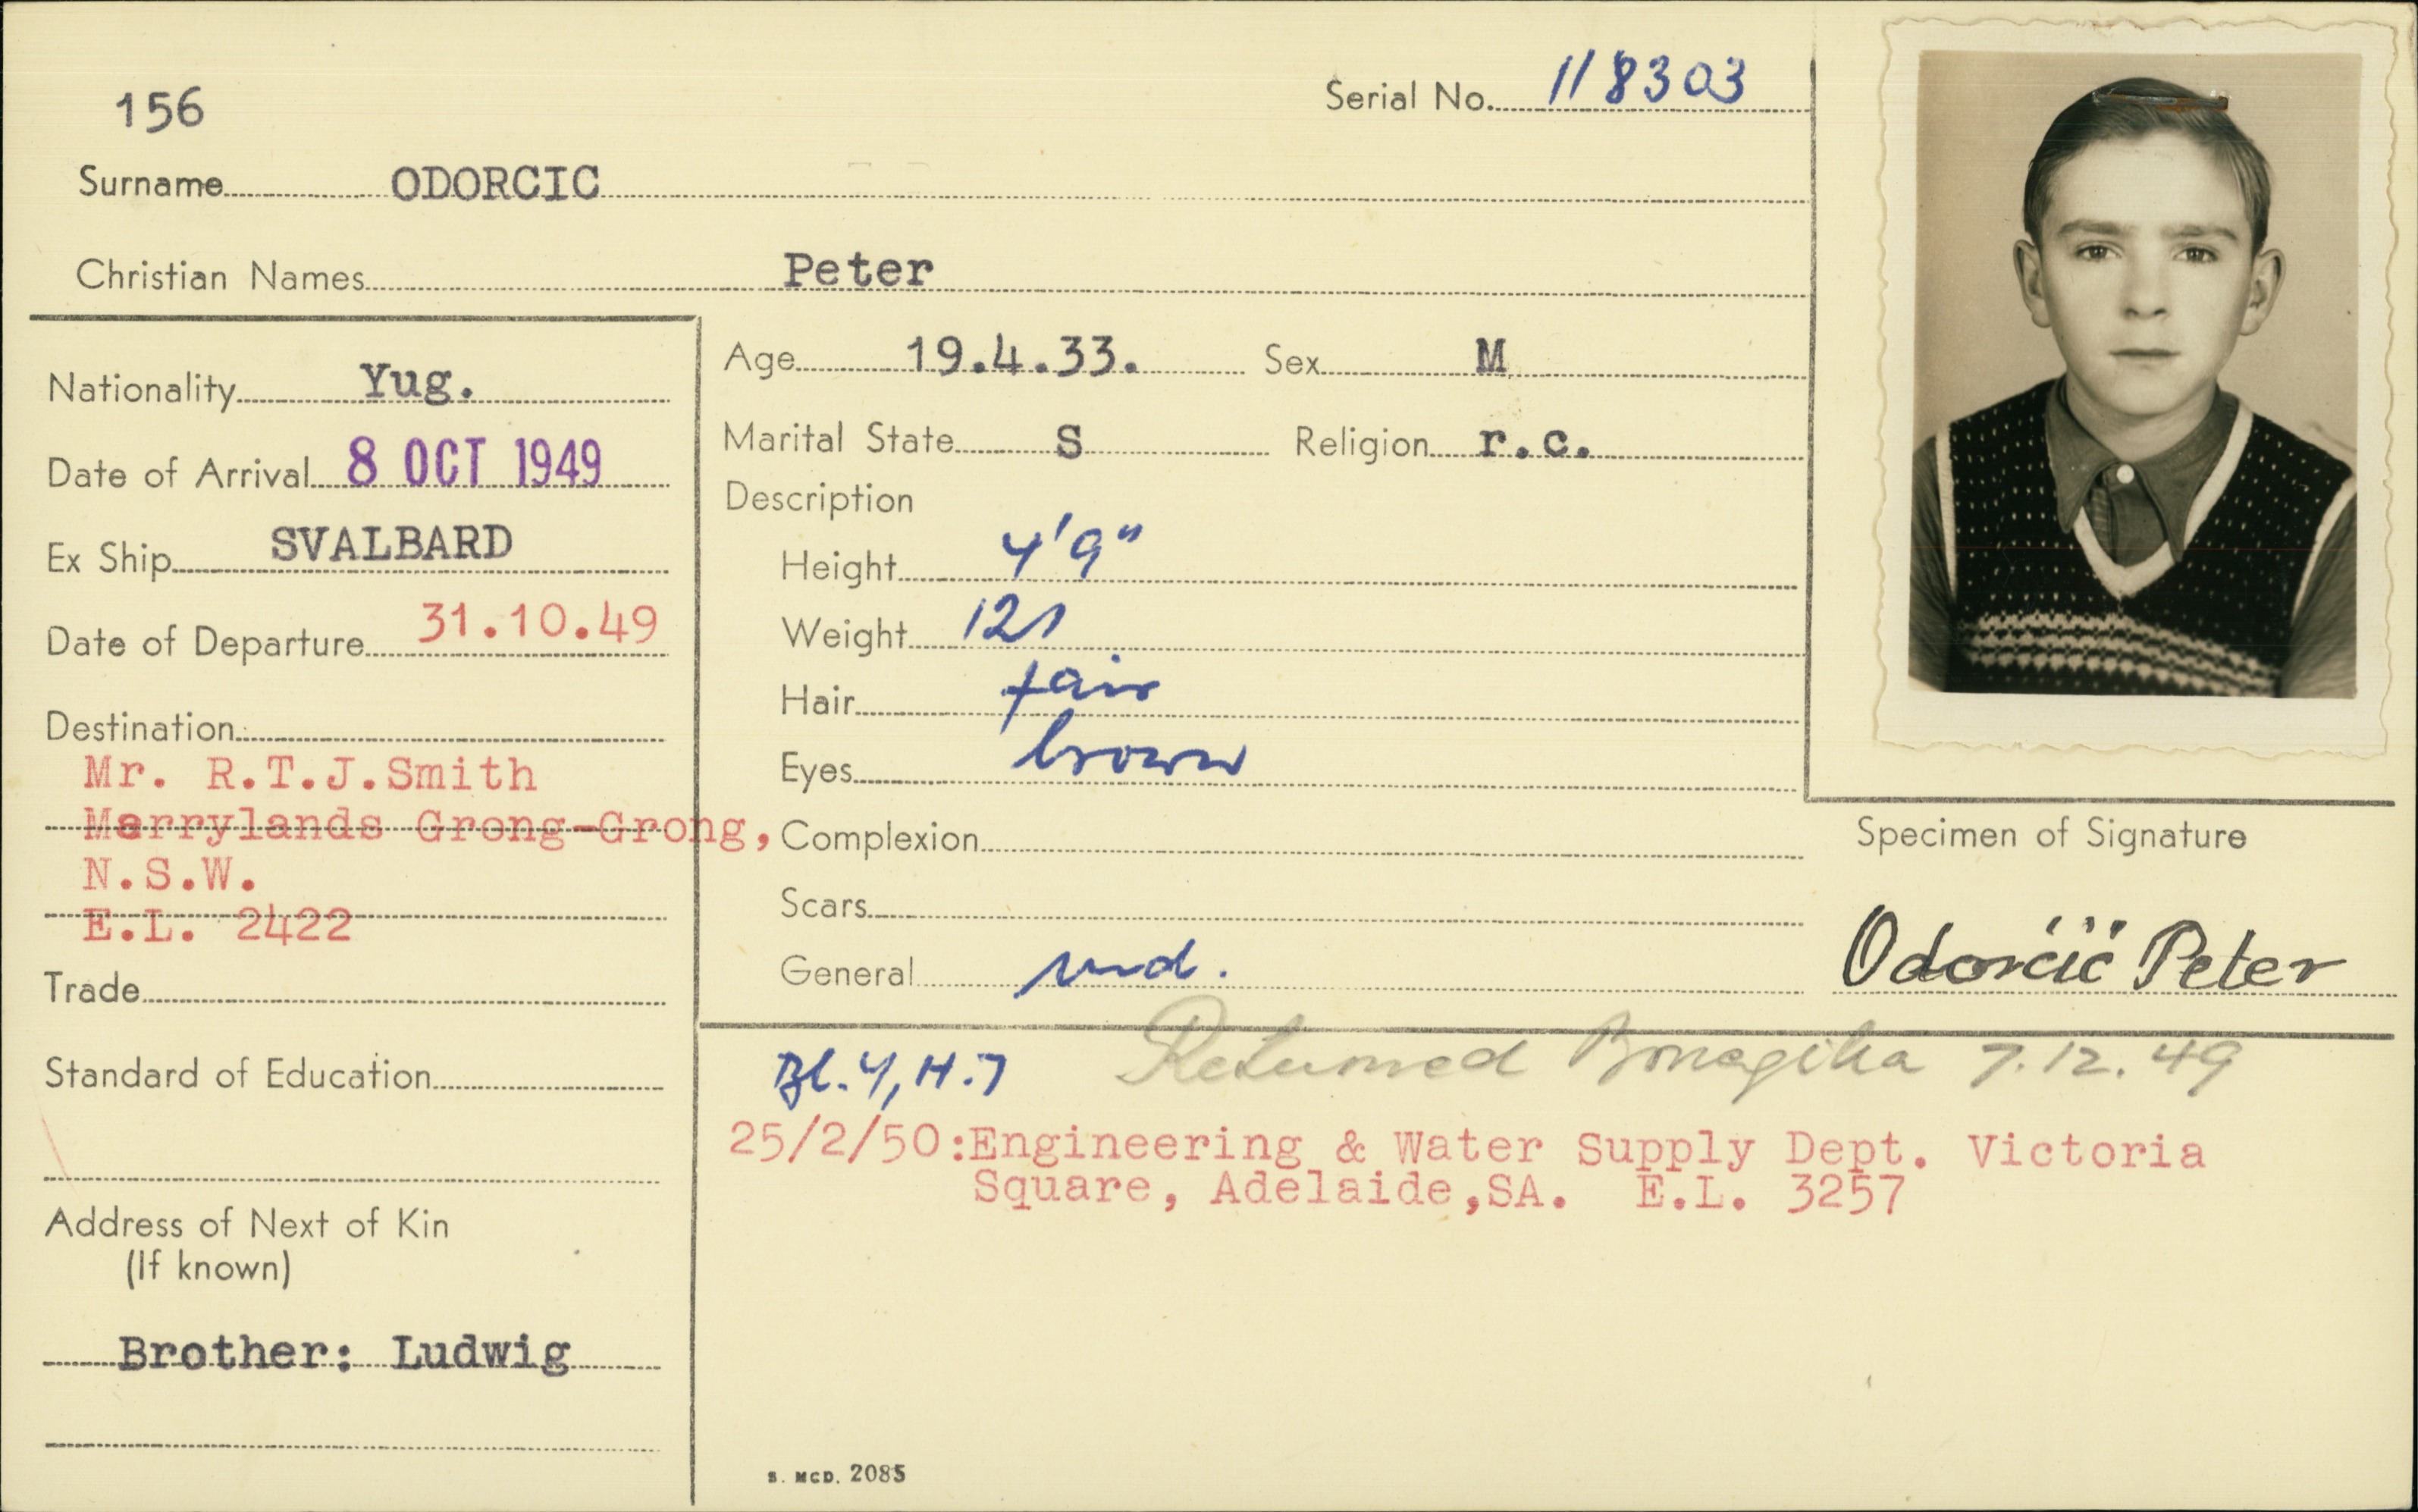 156
Serial No. 118303
Surname ODORCIC
Christian Names Peter
Nationality Yug.
Date of Arrival 8 OCT 1949
Ex Ship SVALBARD
Date of Departure 31.10.49
Destination
Mr. R.T.J.Smith
Merrylands Grong-Grong,
N.S.W.
E.L. 2422
Trade
Standard of Education
Address of Next of Kin
(If known)
Brother: Ludwig
Age 19.4.33. Sex M
Marital State S Religion r.c.
Description
Height 4'9"
Weight 121
Hair fair
Eyes brown
Complexion
Scars
General
Specimen of Signature
Odorčić Peter
Bl. 4, H.7 Returned Bonegilla 7.12.49
25/2/50:Engineering & Water Supply Dept. Victoria
Square, Adelaide,SA. E.L. 3257
S. MCD. 2085